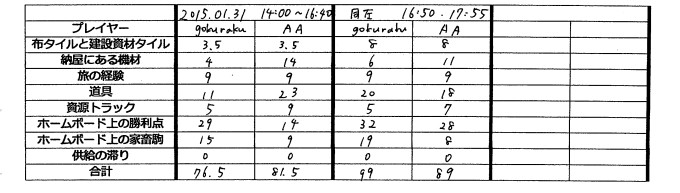 2015.01.31 14:00~16:40 同左 16:50.17:55
プレイヤー gokuraku AA gokuraku AA
布タイルと建設資材タイル 3.5 3.5 8 8
納屋にある機材 4 14 6 11
旅の経験 9 9 9 9
道具 11 23 20 18
資源トラック 5 9 5 7
ホームボード上の勝利点 29 14 32 28
ホームボード上の家畜駒 15 9 19 8
供給の滞り 0 0 0 0
合計 76.5 81.5 99 89